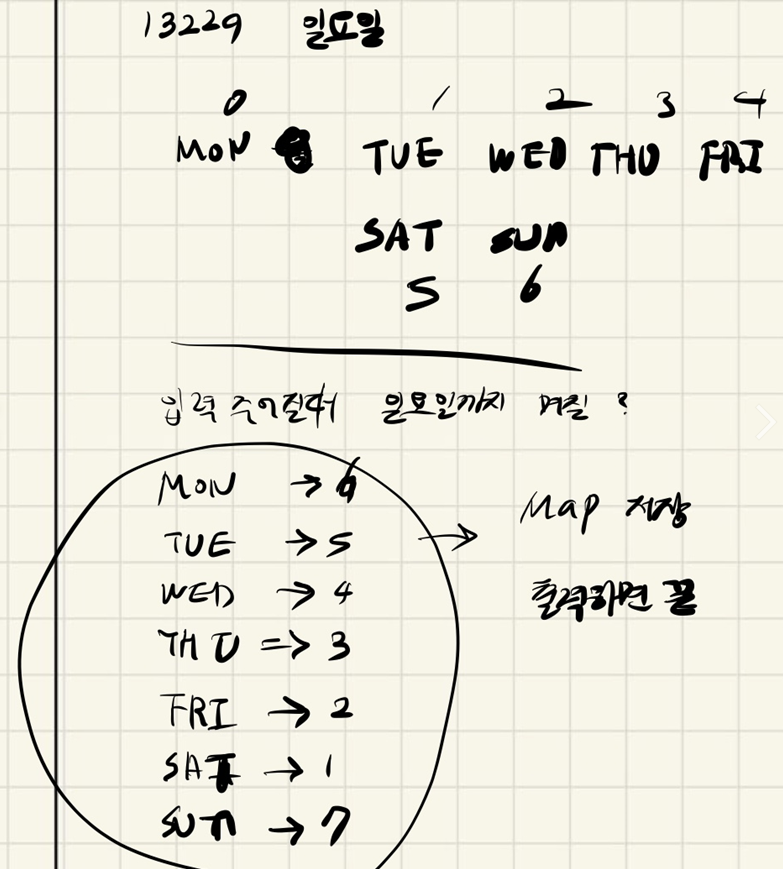 13229 일요일
0 1 2 3 4
MON TUE WED THU FRI
SAT SUN
5 6
입력 주어질때 일요일까지 며칠?
MON → 6
TUE → 5
WED → 4
THU => 3
FRI → 2
SAT → 1
SUN → 7
→ Map 저장
출력하면 끝